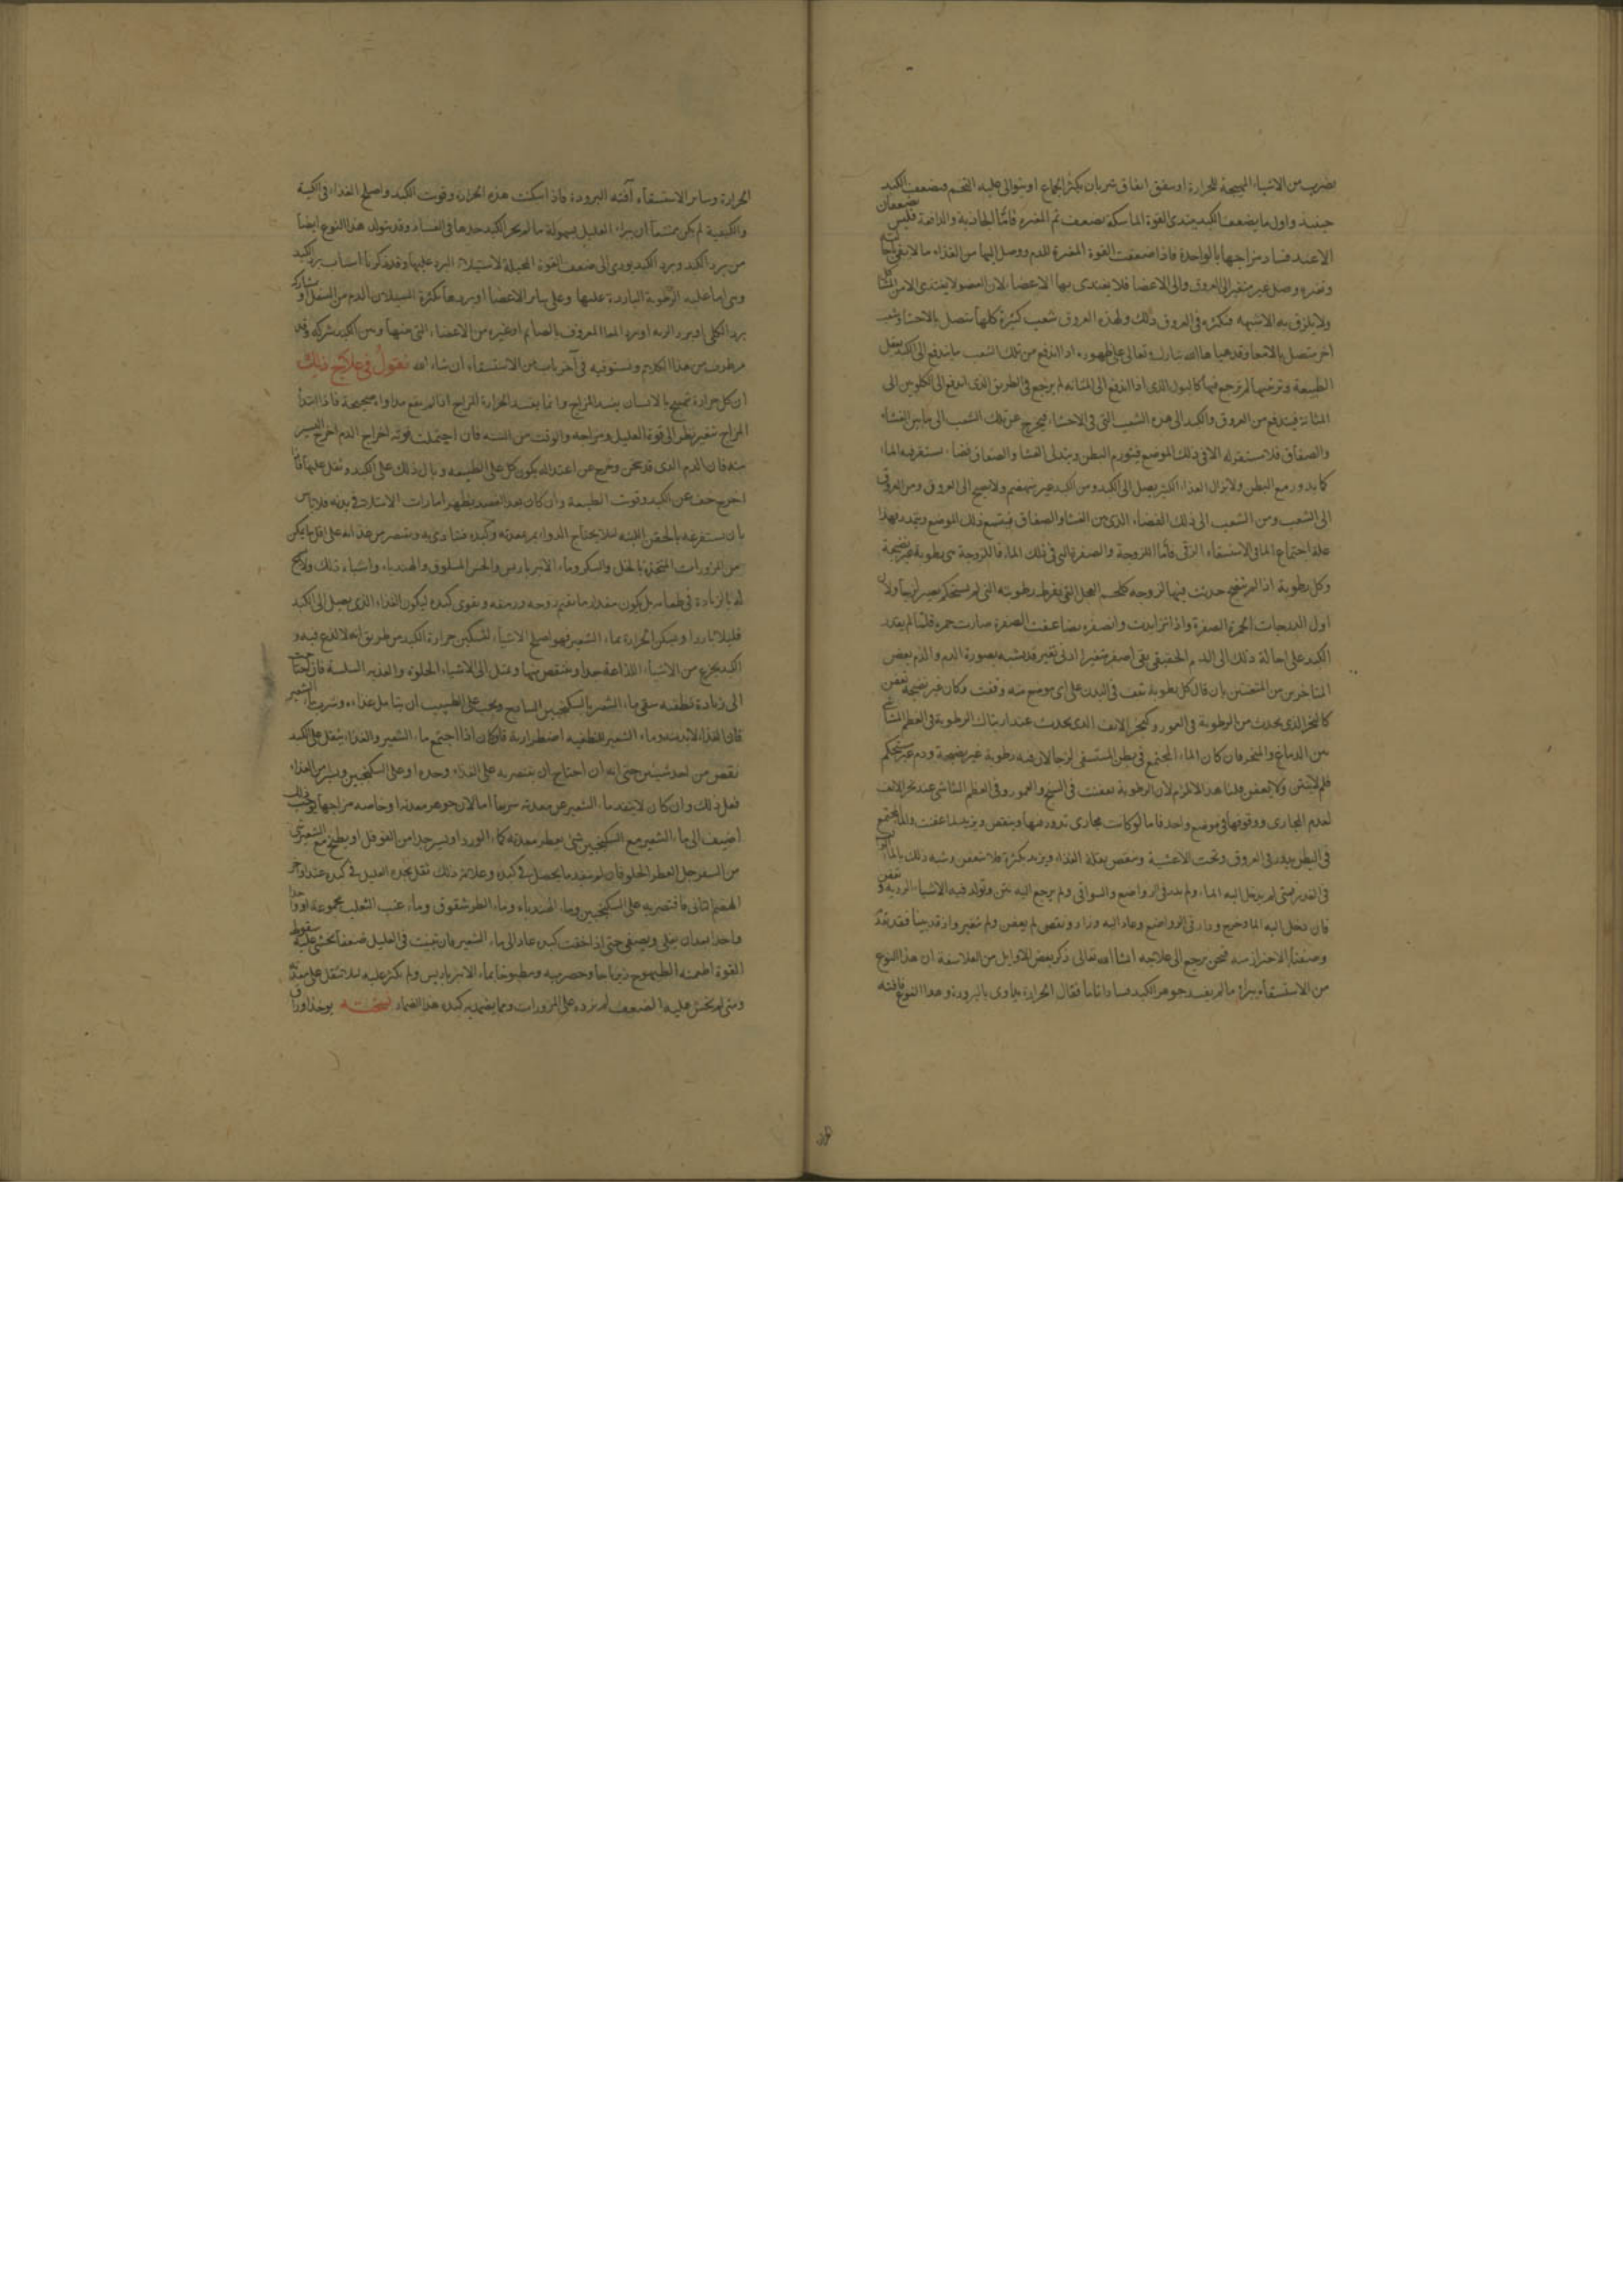 بضرب من الاشياء المهيجة للحرارة او يتفق اتفاق شربان بكثرة الجماع او يتوالى عليه التخم فيضعف الكبد
حينئذ واول ما يضعف الكبد يبتدى القوة الماسكة يضعف ثم المغيره فاما الجاذبة والدافعة فليس يضعفان
الا عند فساد مزاجها بالواحدة فاذا ضعفت القوة المغيرة للدم ووصل اليها من الغذاء ما لا يفى
وتغيره وصل غير متغير الى العروق والى الاعضا فلا يغتدى بها الاعضا لان العضو لا يغتدى الا من
ولا يلزق به الا شبهه فيكثر فى العروق ذلك ولهذه العروق شعب كثيرة كلها يتصل بالاحشا وشعب
اخر يتصل بالامعا وقد هيا هاالله تبارك وتعالى على ظهوره اذا اندفع من تلك الشعب ما يندفع الى الكبد
الطبيعة وترشيها لم يرجع فيها كالبول الذى اذا اندفع الى المثانه لم يرجع فى الطريق الذى اندفع الى الكلى من الى
المثانة فيندفع من العروق والكبد الى هذه الشعب التى فى الاحشاء فيخرج عن تلك الشعب الى ما بين الغشاء
والصفاق فلا مستقر له الا فى ذلك الموضع فيتورم البطن ويمتلى الغشا والصفاق فضاء يستقر فيه الماء
كما يدور مع البطن ولا يزال الغذاء الكثير يصل الى الكبد ومن الكبد غير منهضم ولا نضيج الى العروق ومن العروق
الى الشعب ومن الشعب الى ذلك الفضاء الذى بين الغشا والصفاق فيتسع ذلك الموضع ويتمدد فهذا
علة اجتماع الما فى الاستسقاء الزقى فاما اللزوجة والصفرة التى فى ذلك الماء فاللزوجة من رطوبة غير نضيجة
وكل رطوبة اذا لم تنضج حدثت فيها لزوجه كلحم العجل التى يفرط رطوبته التى لم يستحكم يصير لزجا ولان
اول الدرجات الحمرة الصفرة واذا تزايدت والصفره تضاعفت الصفرة صارت حمره فلما لم يقدر
الكبد على احالة ذلك الى الدم الحقيقى بقى اصفر متغيرا ادنى تغير قد شبه بصورة الدم والذم بعض
المتاخرين من المتعنتين بان قال كل رطوبة تقف فى البدن على اى موضع منه وقفت وكان غير نضيجة تعفن
كالبخر الذى يحدث من الرطوبة فى العمور وكبخر الانف الذى يحدث عند ارتباك الرطوبة فى العظم المشاشى
بين الدماغ والمنخر فان كان الماء المجتمع فى بطن المستسقى لزجا لان فيه رطوبة غير نضيجة ودم غير مستحكم
فلم لا ينتن ولا يعفن قلنا هذا الالزام لان الرطوبة تعفنت فى السنخ والعمور وفى العظم المشاشى عند بخر الانف
لعدم المجارى ووقوفها فى موضع واحد فاما لو كانت مجارى تدور فيها وينقص ويزيد لما عفنت والماء المجتمع
فى البطن يدور فى العروق وتحت الاغشية وينقص بقلة الغذاء ويزيد بكثرة فلا يتعفن وشبه ذلك بالماء
فى الغدير متى لم يدخل اليه الماء ولم يدر فى الرواضع والسواقى ولم يرجع اليه نتن وتولد فيه الاشياء الردية
فان دخل اليه الما وخرج ودار فى الرواضع وعاد اليه وزاد ونقص لم يعفن ولم تتغير واذ قد بينا فقد
وصفنا الاحتراز منه فنحن نرجع الى علاجه انشا الله تعالى ذكر بعض الاوايل من الفلاسفة ان هذا النوع
من الاستسقاء يبراء ما لم يفسد جوهر الكبد فسادا تاما فقال الحرارة يداوى بالبرودة وهذا النوع آفته
الحرارة وساير الاستسقاء آفته البرودة فاذا سكنت هذه الحرارة وقويت الكبد واصلح الغذاء فى الكمية
والكيفية لم يكن ممتنعا ان يبراء العليل بسهولة ما لم يجز الكبد حدها فى الفساد وقد يتولد هذا النوع ايضا
من برد الكبد وبرد الكبد يودى الى ضعف القوة المحيلة لاستيلاء البرد عليها وقد ذكرنا اسباب برد الكبد
وهى اما غلبه الرطوبة الباردة عليها وعلى ساير الاعضا او بردها بكثرة السيلان الدم من السفل او
برد الكلى او برد الريه او برد المعا المعروف بالصايم او غيره من الاعضاء التى منها وبين الكبد شركه وقد
مر طرف من هذا الكلام ونستوفيه فى آخر باب من الاستسقاء ان شاء الله نقول فى علاج ذلك
ان كل حرارة تهيج بالانسان يفسد المزاج وانما يفسد الحرارة المزاج اذا لم يقع مداواه صحيحة فاذا ابتدا
المزاج يتغير نظر الى قوة العليل ومزاجه والوقت من السنه فان احتملت قوته اخراج الدم اخرج اليسير
منه فان الدم الذى قد سخن وخرج عن اعتداله يكون كل على الطبيعه وبال ذلك على الكبد وثقل عليها فاذا
اخرج خف عن الكبد وقويت الطبيعة وان كان بعد الفصد يظهر امارات الامتلاء فى بدنه فلا باس
بان يستفرغه بالحقن اللينه ليلا يحتاج الدواء يمر بمعدته وكبده فيتاذى به ويقتصر من غذائه على اقل ما يمكن
من المزورات المتخذة بالخل والسكر وماء الانبرباريس والخس المسلوق والهندباء واشباه ذلك ولا يسمح
له بالزيادة فى طعامه بل يكون مقدار ما يقيم روحه ورمقه ويقوى كبده ليكون الغذاء الذى يصل الى الكبد
قليلا باردا ويسكن الحرارة بماء الشعير فهو اصلح الاشياء لتسكين حرارة الكبد من طريق انه لا لذع فيه و
الكبد يجزع من الاشياء اللذاعة جدا وينقبض منها ويميل الى الاشياء الحلوة والعذبه السلسة فان احتاجت
الى زيادة تطفيه سقى ماء الشعير بالسكنجبين الساذج ويجب على الطبيب ان يتامل غذاءه وشربه ماء الشعير
فان الغذاء لا بد منه وماء الشعير للتطفيه اضطرارية فان كان اذا اجتمع ماء الشعير والغذاء يثقل على الكبد
نقص من احد شيئين حتى انه ان احتاج ان يقتصر به على الغذاء وحده او على السكنجبين ويسير من الغذاء
فعل ذلك وان كان لا ينفذ ماء الشعير عن معدته سريعا اما لان جوهر معدته او خاصه مزاجها يوجب ذلك
اضيف الى ماء الشعير مع السكنجبين شئ يعطر معدته كماء الورد او يسير جدا من الفوفل او يطبخ مع الشعير شئ
من السفرجل العطر الحلو فان لم ينفذ ما يحصل فى كبده وعلامة ذلك ثقل يجده العليل فى كبده عند اواخر
الهضم الثانى فاقتصر به على السكنجبين وماء الهندباء وماء الطرشقوق وماء عنب الثعلب مجموعة او
واحدا بعد ان يغلى ويصفى حتى اذا خفت كبده عاد الى ماء الشعير فان تبينت فى العليل ضعفا يخشى عليه سقوط
القوة اطعمته الطيهوج زيرباجا وحصرميه ومطبوخا بماء الانبرباريس ولم يكثر عليه ليلا يثقل على معدته
ومتى لم يخش عليه الضعف لم يزده على المزورات ومما يضمد به كبده هذا الضماد نسخته يوخذ اوراق